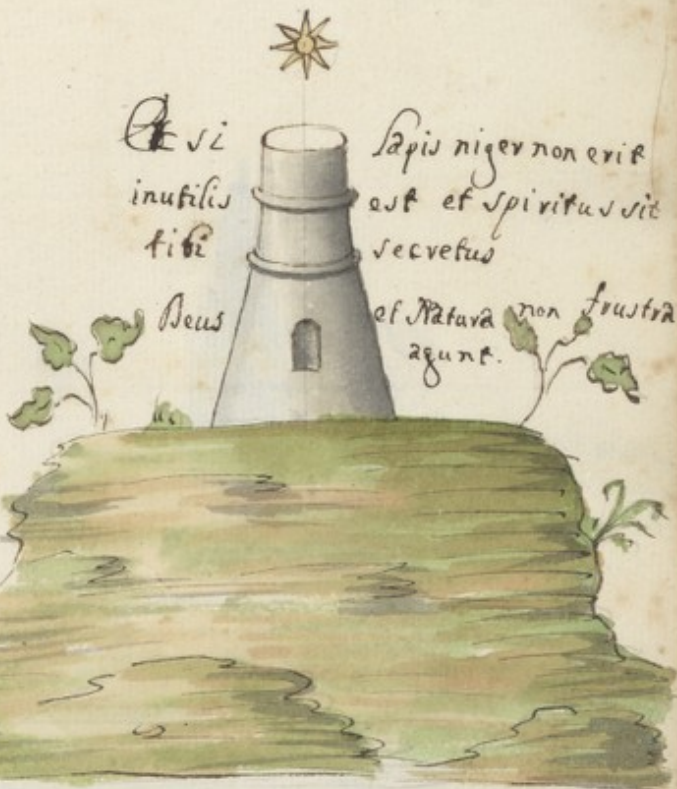 Et si Lapis niger non erit
inutilis est et spiritus sit
tibi secretus
Deus et Natura non frustra
agunt.